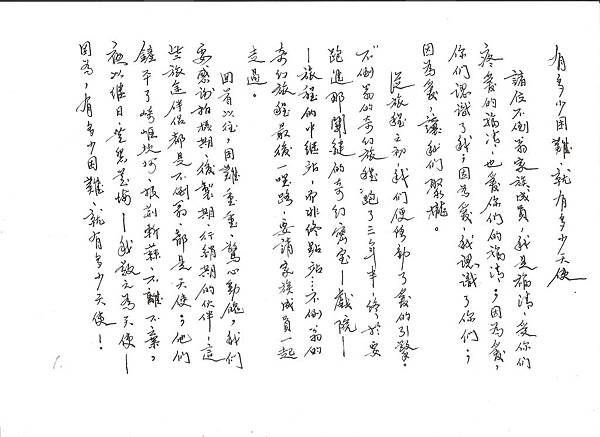 有多少困難，就有多少天使
諸位不倒翁家族成員，我是福清，受你們
疼愛的福清，也愛你們的福清；因為愛，
你們認識了我；因為愛，我認識了你們；
因為愛，讓我們聚攏。
從旅程之初，我們便啟動了愛的引擎。
不倒翁的奇幻旅程跑了三年半，終於要
跑進那闃徒的奇幻密室—戲院—
—旅程的中繼站，而非終點站…不倒翁的
奇幻旅程最後一哩路，要請家族成員一起
走過。
回首以往，困難重重，驚心動魄，我們
要感謝拍攝期、後製期、行銷期的伙伴，這
些旅途伴侶都是不倒翁，都是天使；他們
鏟平了崎嶇坎坷，披荊斬棘，不離不棄，
夜以繼日，
—我敬之為天使—
因為，有多少困難，就有多少天使！
1.